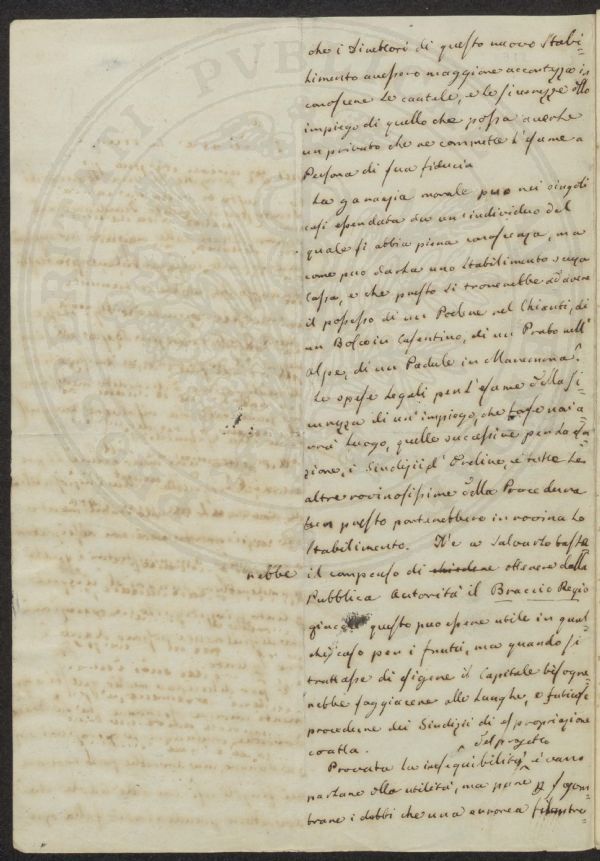 che i Direttori di questo nuovo Stabi-
limento avessero maggiore accortezza in
conoscere le cautele, e le sicurezze dello
impiego di quello che possa averne
un privato che ne commette l'esame a
Persona di sua fiducia
La garanzia morale può nei singoli
casi esser data da un individuo del
quale si abbia piena conoscenza, ma
come può darla uno Stabilimento senza
Cassa, e che presto si troverebbe ad avere
il possesso di un Podere nel Chianti, di
un Bosco in Casentino, di un Prato nell'
alpe, di un Padule in Maremma?
Le spese Legali per l'esame della si-
curezza di un'impiego, che forse non a
vrà Luogo, quelle successive per la
zione, i Giudizij d'Ordine, e tutte Le
altre rovinosissime della Procedura
ben presto porterebbero in rovina Lo
Stabilimento. Ne a salvarlo baste
rebbe il compenso di chiedere ottenere dalla
Pubblica Autorità il Braccio Regio
giacchè questo può essere utile in qual
che caso per i frutti, ma quando si
trattasse di esigere il Capitale bisogne
rebbe soggiacere alle Lunghe, e faticose
procedure dei Giudizij di espropriazione
coatta.
del progetto
Provata la ineseguibilità è vano
parlare della utilità, ma pure
trare i dubbi che una erronea